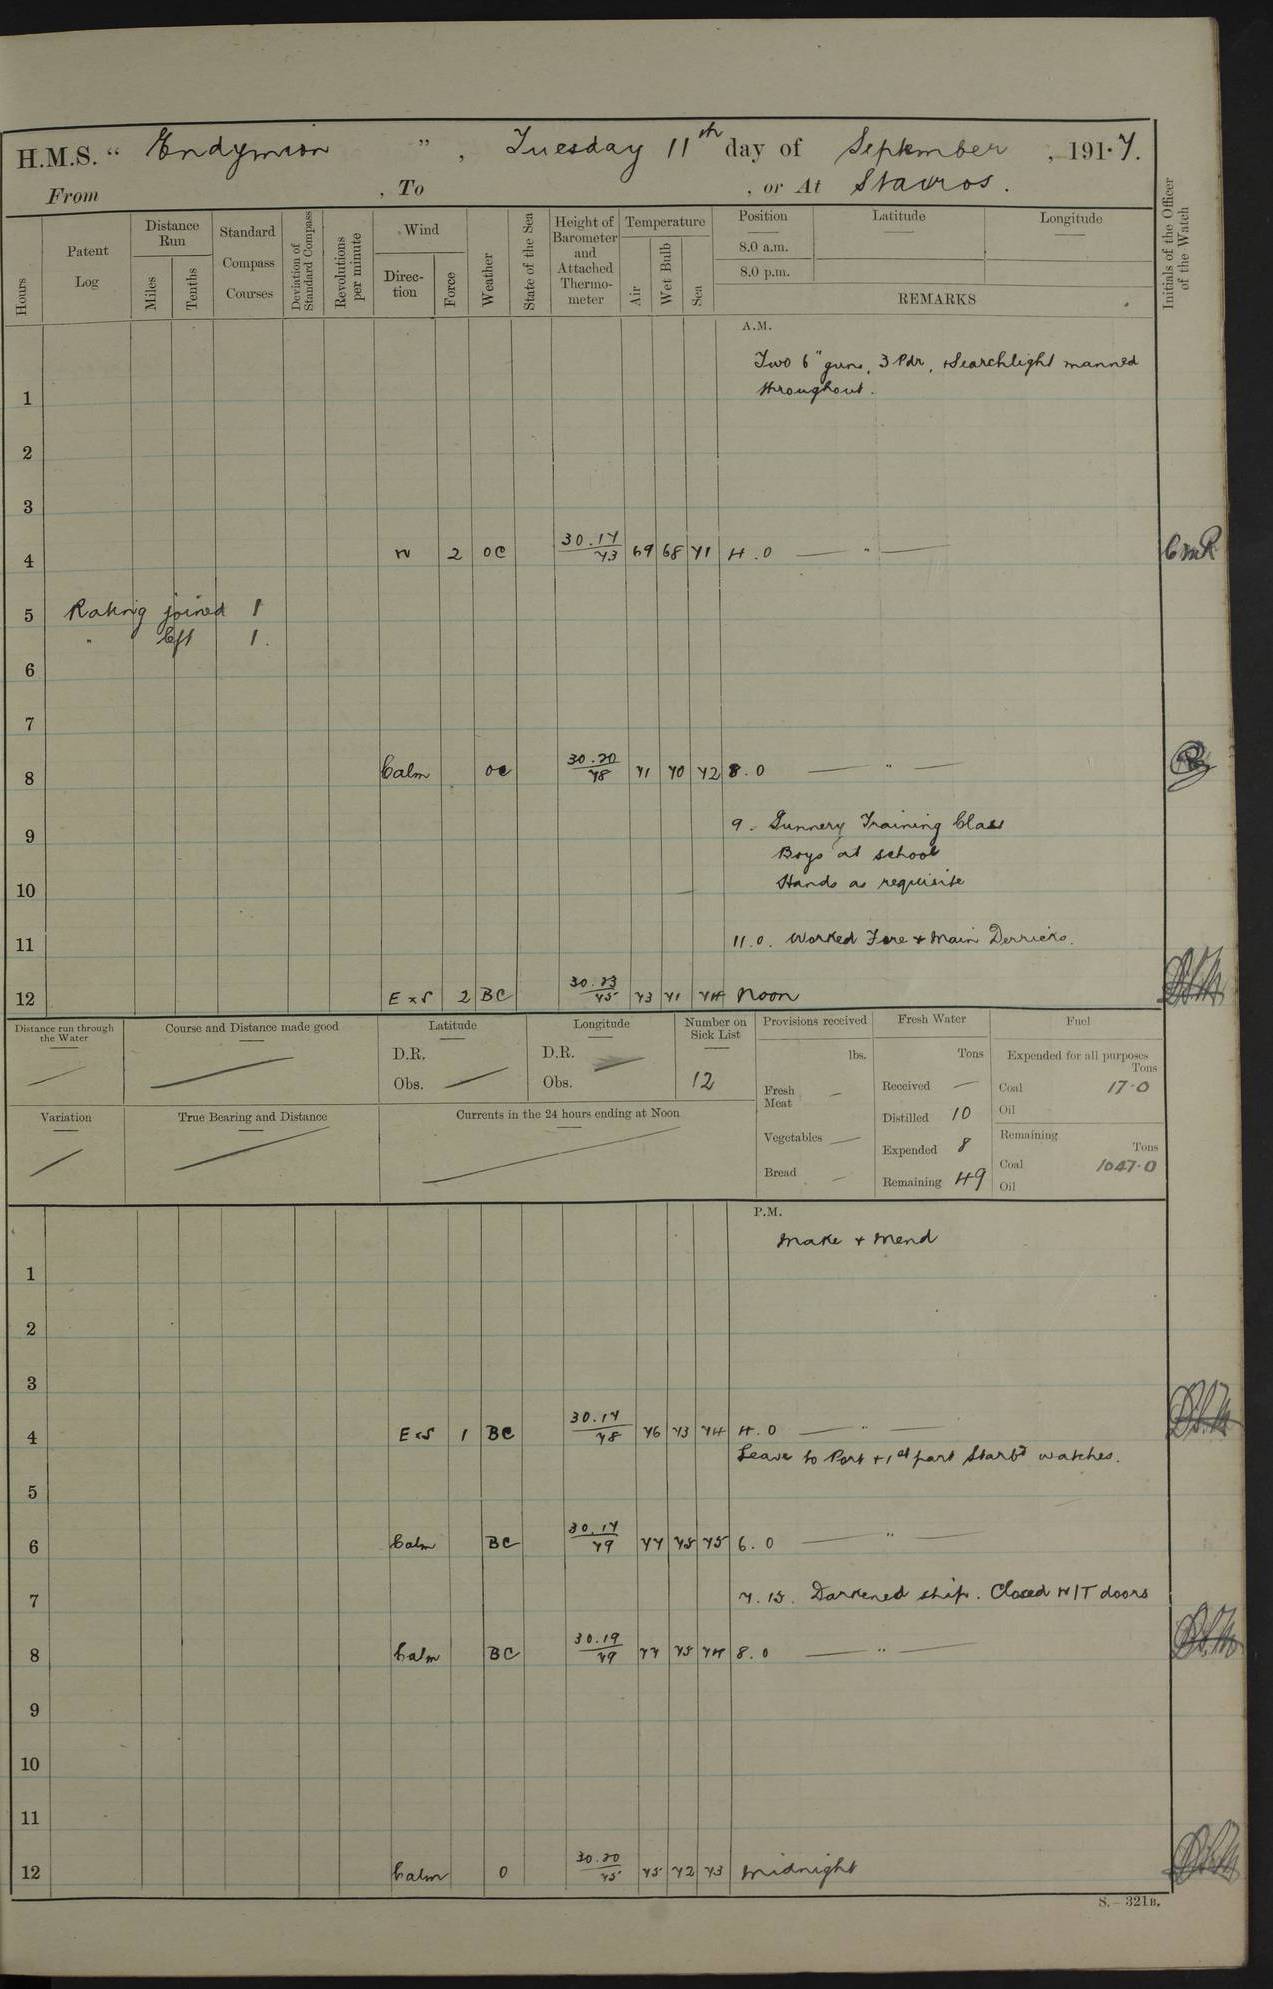 H.M.S. " Endymion ", Tuesday 11th day of September, 1917.
From , To , or At Stavros.
Hours
Patent Log
Distance Run
Miles
Tenths
Standard Compass Courses
Deviation of Standard Compass
Revolutions per minute
Wind
Direction
Force
Weather
State of the Sea
Height of Barometer and Attached Thermometer
Temperature
Air
Wet Bulb
Sea
Position
8.0 a.m.
8.0 p.m.
Latitude
Longitude
REMARKS
Initials of the Officer of the Watch
A.M.
Two 6" guns, 3 Pdr, + Searchlight manned
throughout.
1
2
3
4 W 2 OC 30.17/73 69 68 71 4.0 — " — CMR
5 Rating joined 1
" left 1.
6
7
8 Calm OC 30.20/78 71 70 72 8.0 — " —
9 9- Gunnery Training Class
Boys at school
10 Hands as requisite
11 11.0. Worked Fore + Main Derricks.
12 E x S 2 BC 30.23/75 73 71 74 Noon
Distance run through the Water
Course and Distance made good
Latitude
D.R.
Obs.
Longitude
D.R.
Obs.
Number on Sick List
12
Provisions received
lbs.
Fresh Meat —
Vegetables —
Bread —
Fresh Water
Tons
Received —
Distilled 10
Expended 8
Remaining 49
Fuel
Expended for all purposes
Tons
Coal 17.0
Oil
Remaining
Tons
Coal 1047.0
Oil
Variation
True Bearing and Distance
Currents in the 24 hours ending at Noon
P.M.
Make + Mend
1
2
3
4 E x S 1 BC 30.17/78 76 73 74 4.0 — " —
Leave to Port + 1st part Starbd watches.
5
6 Calm BC 30.17/79 77 75 75 6.0 — " —
7 7.15. Darkened ship. Closed W/T doors
8 Calm BC 30.19/79 77 75 74 8.0 — " —
9
10
11
12 Calm O 30.20/75 75 72 73 Midnight
S.—321B.